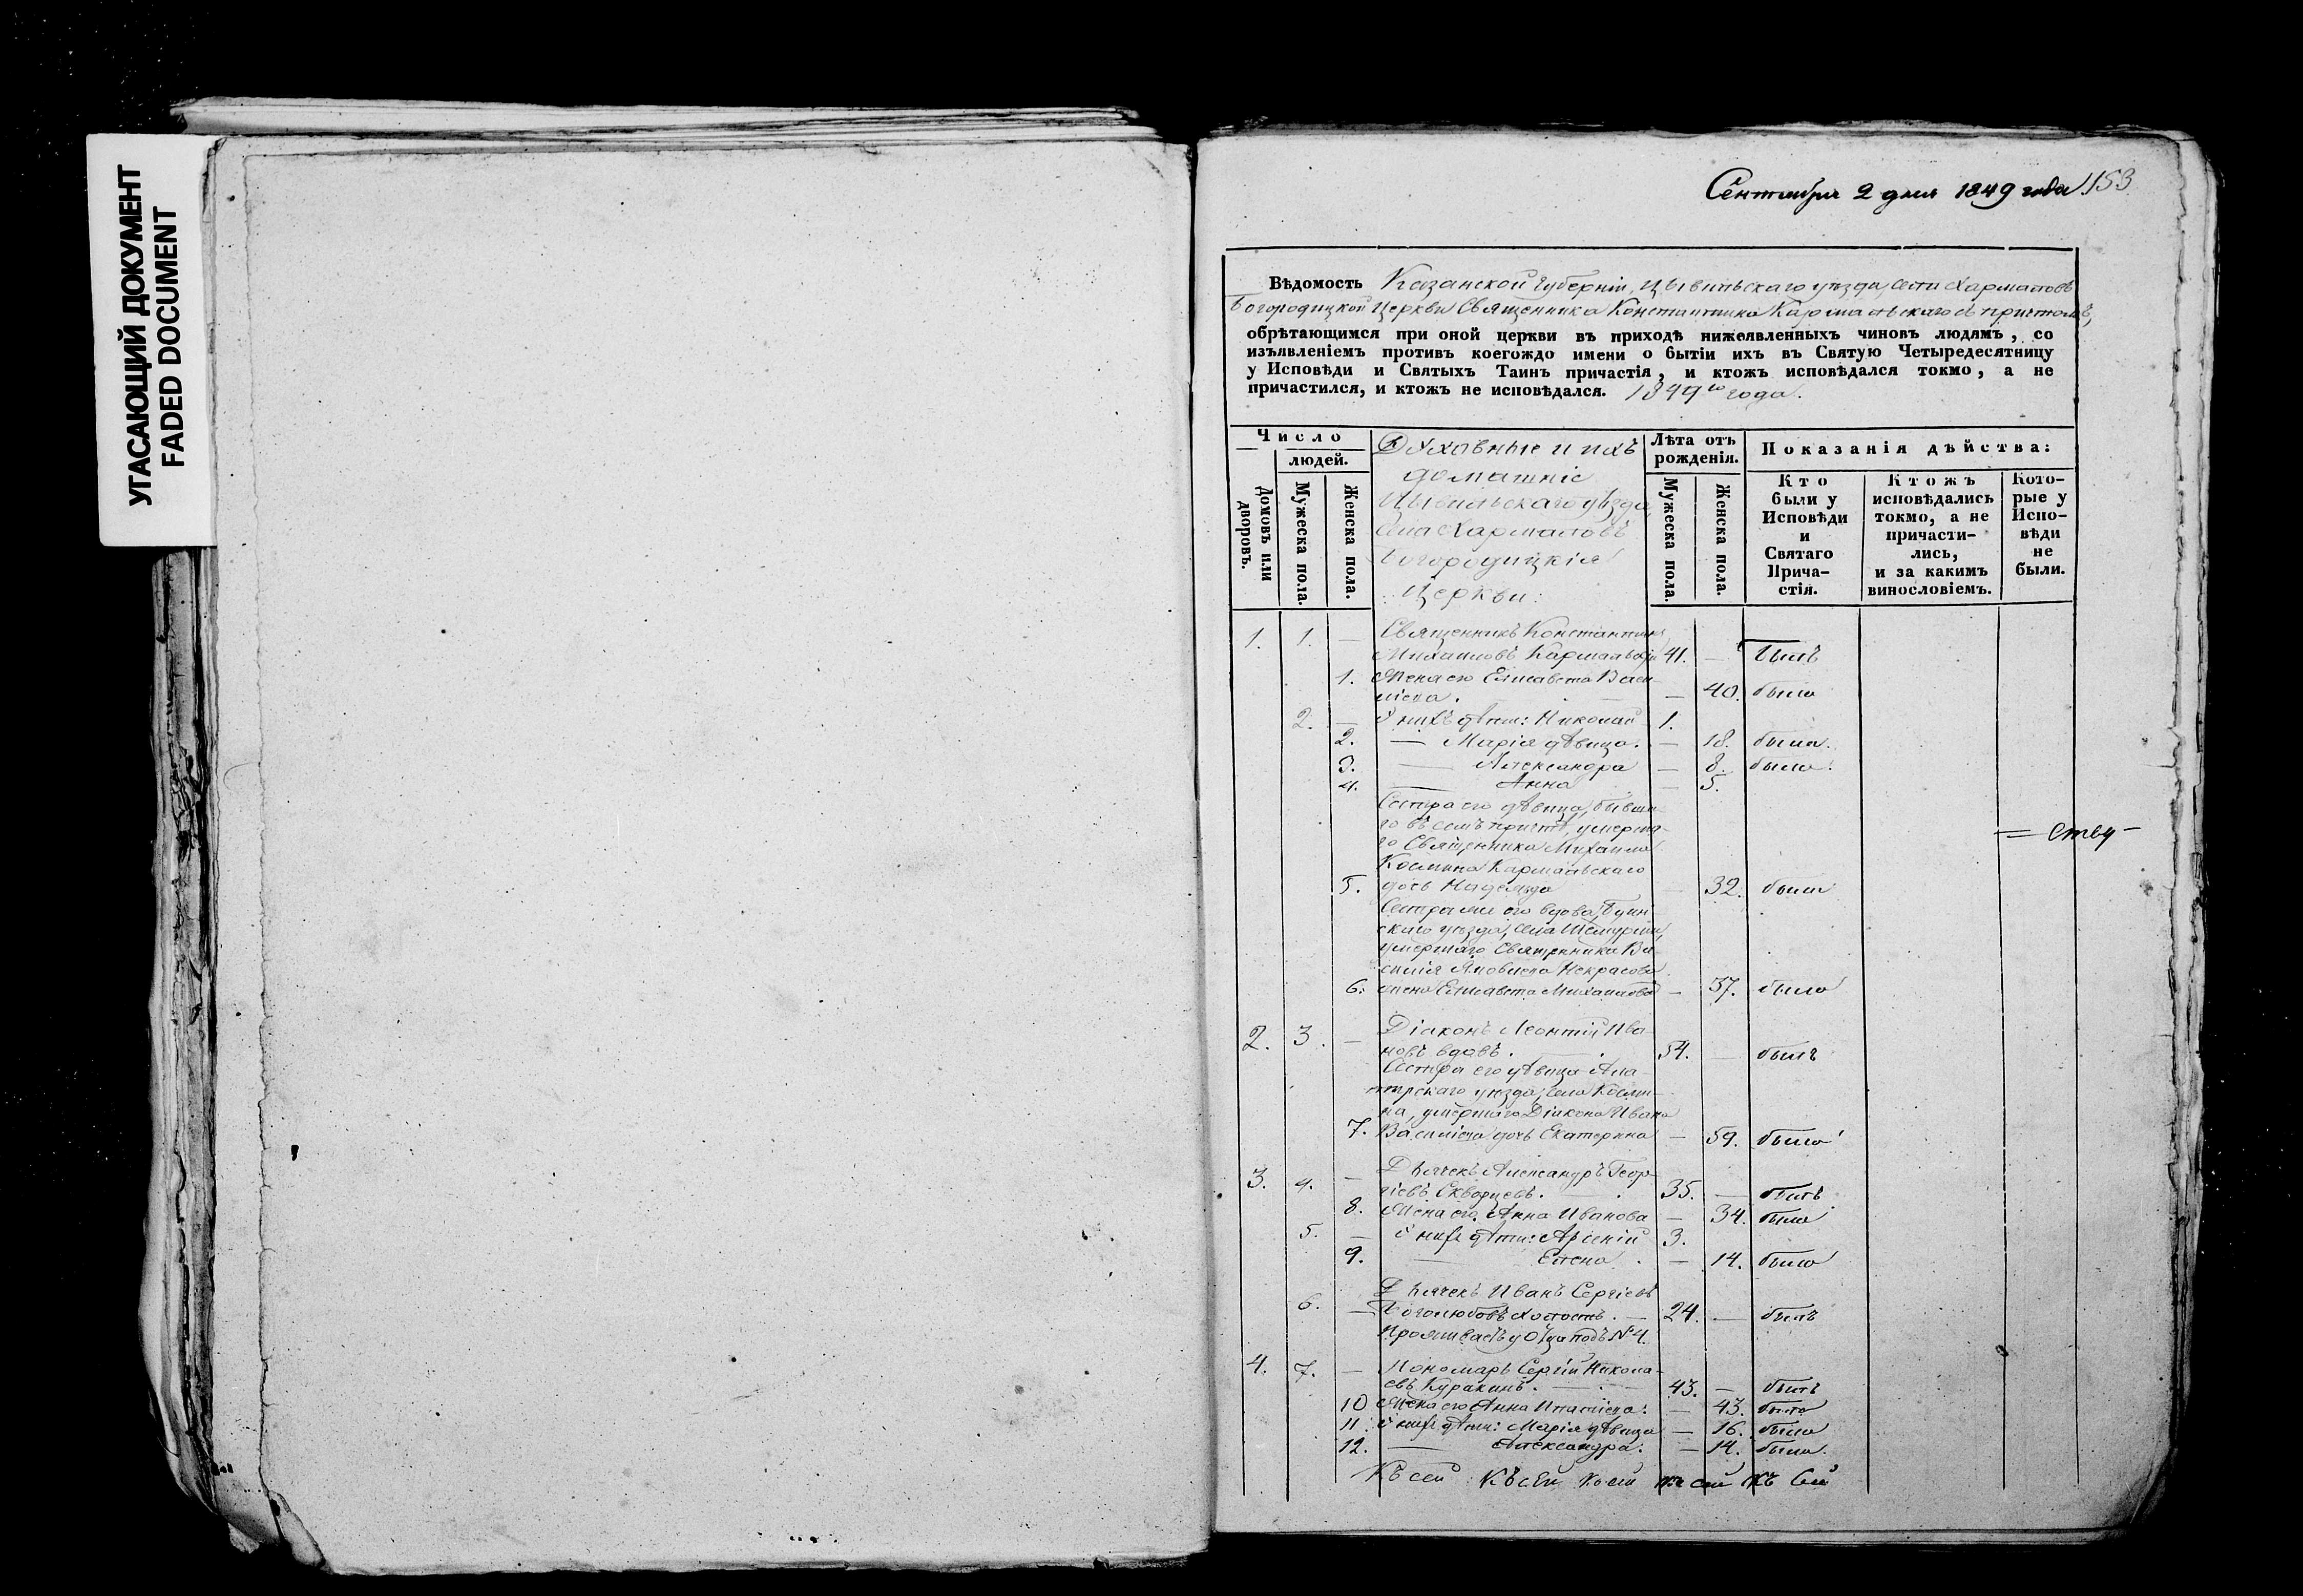 УГАСАЮЩИЙ ДОКУМЕНТ
FADED DOCUMENT
Сентября 2 дня 1849 года 153
Вѣдомость Казанской Губерніи, Цывильскаго уѣзда, села Хармаловъ
Богородицкой Церкви Священника Константина Кармальскаго съ причтомъ,
обрѣтающимся при оной церкви въ приходѣ нижеявленныхъ чиновъ людямъ, со
изъявленіемъ противъ коегождо имени о бытіи ихъ въ Святую Четыредесятницу
у Исповѣди и Святыхъ Таинъ причастія, и ктожъ исповѣдался токмо, а не
причастился, и ктожъ не исповѣдался. 1849го года.
Число
людей.
Домовъ или дворовъ.
Мужеска пола.
Женска пола.
Духовные и ихъ
домашніе
Цывильскаго уѣзда,
села Хармаловъ
Богородицкія
Церкви:
Лѣта отъ
рожденія.
Мужеска пола.
Женска пола.
Показанія дѣйства:
Кто
были у
Исповѣди
и
Святаго
Прича-
стія.
Ктожъ
исповѣдались
токмо, а не
причасти-
лись,
и за какимъ
винословіемъ.
Кото-
рые у
Испо-
вѣди
не
были.
1. 1. — Священникъ Константинъ
Михаиловъ Кармальскій 41. — былъ
1. Жена его Елисавета Васи-
ліева. — 40. была
2. — У нихъ дѣти: Николай 1.
2. — Марія дѣвица. — 18. была.
3. — Александра — 8. была.
4. — Анна — 5.
Сестра его дѣвица, бывша-
го въ семъ причтѣ, умерша-
го Священника Михаила
Космина Кармальскаго
5. дочь Надежда — 32. была
Сестра же его вдова, Буин-
скаго уѣзда, села Шемурши,
умершаго Священника Ва-
силія Яковлева Некрасова
6. жена Елисавета Михаилова — 37. была
2. 3. — Діаконъ Леонтій Ива-
новъ вдовъ. 54. — былъ
Сестра его дѣвица Ала-
тырскаго уѣзда, села Косми-
на, умершаго Діакона Ивана
7. Василіева дочь Екатерина — 59. была
3. 4. — Дьячекъ Александръ Геор-
гіевъ Скворцевъ. 35. — былъ
8. Жена его Анна Иванова — 34. была
5. — У нихъ дѣти: Арсеній 3.
9. — Елена. — 14. была
Дьячекъ Иванъ Сергіевъ
6. — Боголюбовъ холостъ. 24. — былъ
Проживаетъ у Отца подъ № 4.
4. 7. — Пономарь Сергій Никола-
евъ Куракинъ. 43. — былъ
10 Жена его Анна Ипатіева. — 43. была
11. У нихъ дѣти: Марія дѣвица — 16. была
12. — Александра. — 14. была.
Къ сей Къ сей къ сей къ сей Къ Сей
= ству —